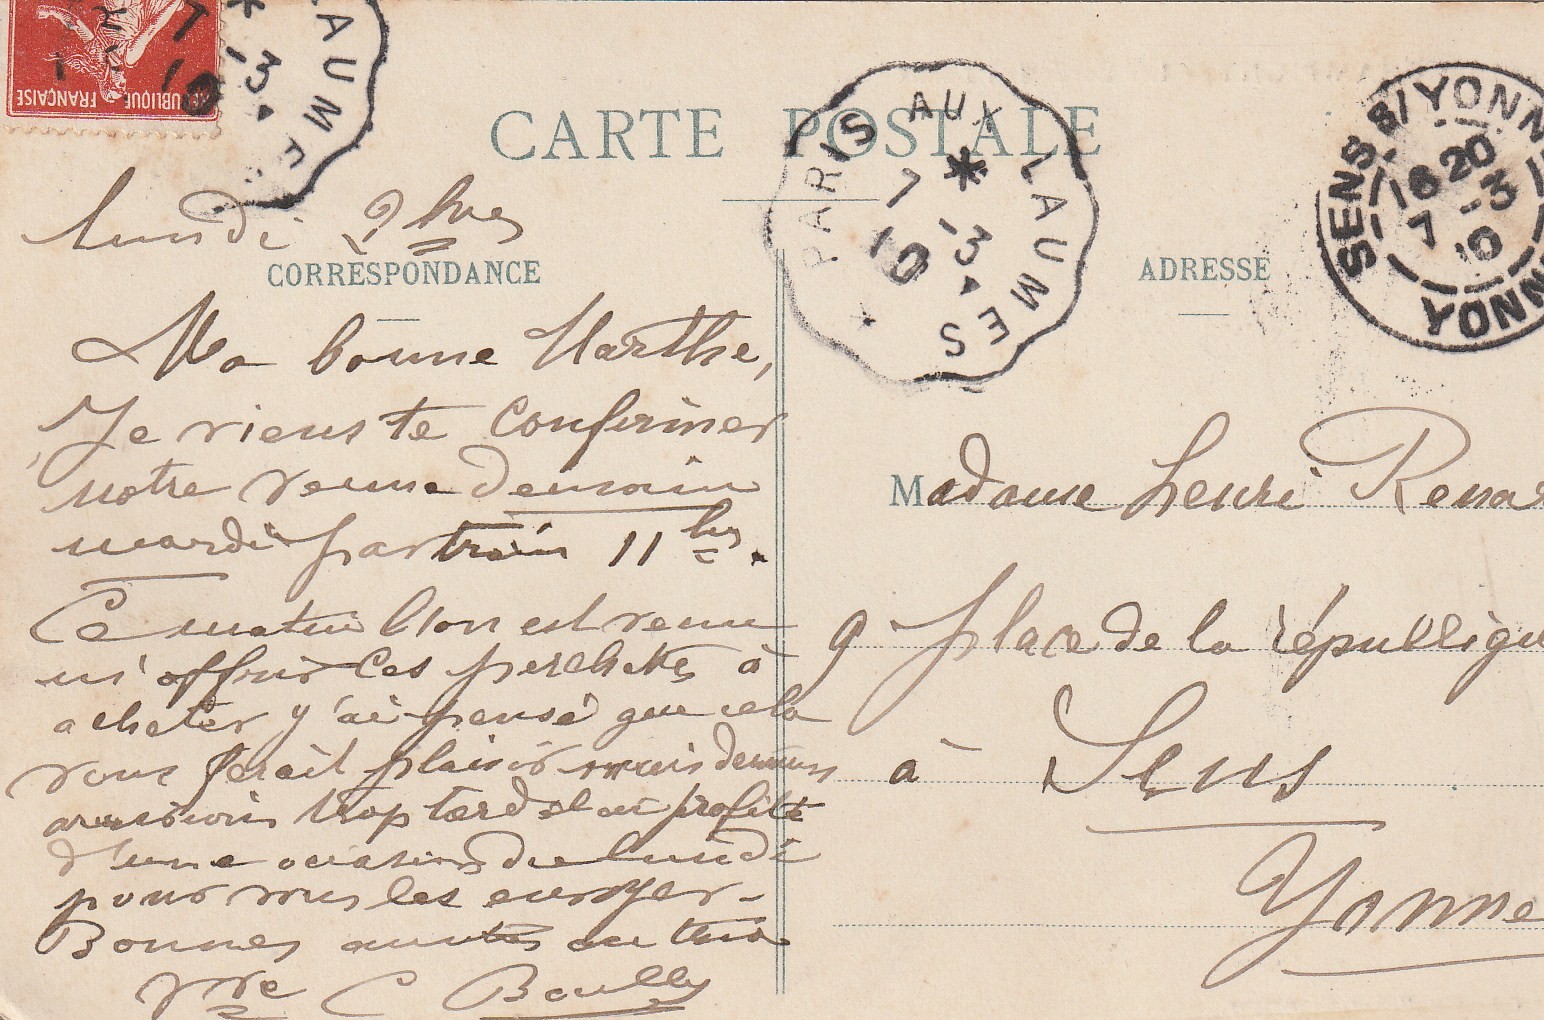 RÉPUBLIQUE FRANÇAISE
7 -3
10
LAUMES
CARTE POSTALE
PARIS AUX LAUMES
7 -3
10
SENS S/ YONNE
16 20
7 -3
10
YONNE
lundi 2 hres
CORRESPONDANCE
ADRESSE
Ma bonne Marthe,
Je viens te confirmer
notre venue demain
mardi par train 11 hs.
Ce matin l'on est venu
m'offrir ces perchettes à
acheter j'ai pensé que cela
vous ferait plaisir mais demain
trop tard et ai profité
d'une occasion de lundi
pour vous les envoyer -
Bonnes au
Vve C Boully
Madame Henri Renar
9 place de la république
à Sens
Yonne